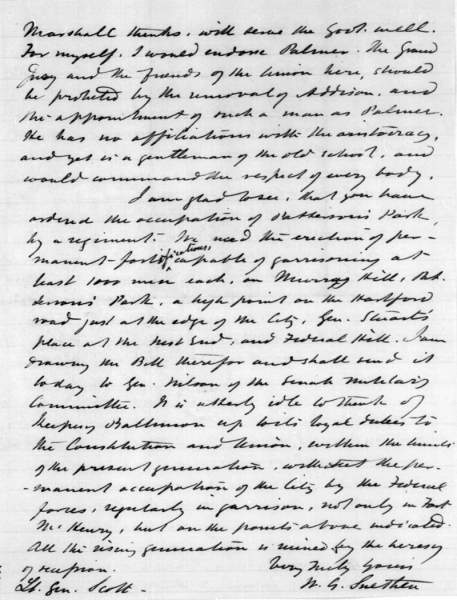 Marshall thinks, will serve the Govt. well.
For myself, I would endorse Palmer. The Grand
Jury and the friends of the Union here, should
be protected by the removal of Addison, and
the appointment of such a man as Palmer.
He has no affiliations with the aristocracy,
and yet is a gentleman of the old school, and
would command the respect of every body.
I am glad to see, that you have
ordered the occupation of Patterson's Park,
by a regiment. We need the erection of per-
manent fortifications, capable of garrisoning at
least 1000 men each, on Murray Hill, Pat-
terson's Park, a high point on the Hartford
road just at the edge of the City, Gen. Steuart's
place at the West End, and Federal Hill. I am
drawing the Bill therefor and shall send it
to day to Gen. Wilson of the Senate Military
Committee. It is utterly idle to think of
keeping Baltimore up to its loyal duties to
the Constitution and Union, within the limits
of the present generation, without the per-
-manent occupation of the City by the Federal
forces, regularly in garrison, not only in Fort
McHenry, but on the points above indicated.
All the rising generation is ruined by the heresy
of secession.
Very truly yours
Lt. Gen. Scott.
W. G. Snethen